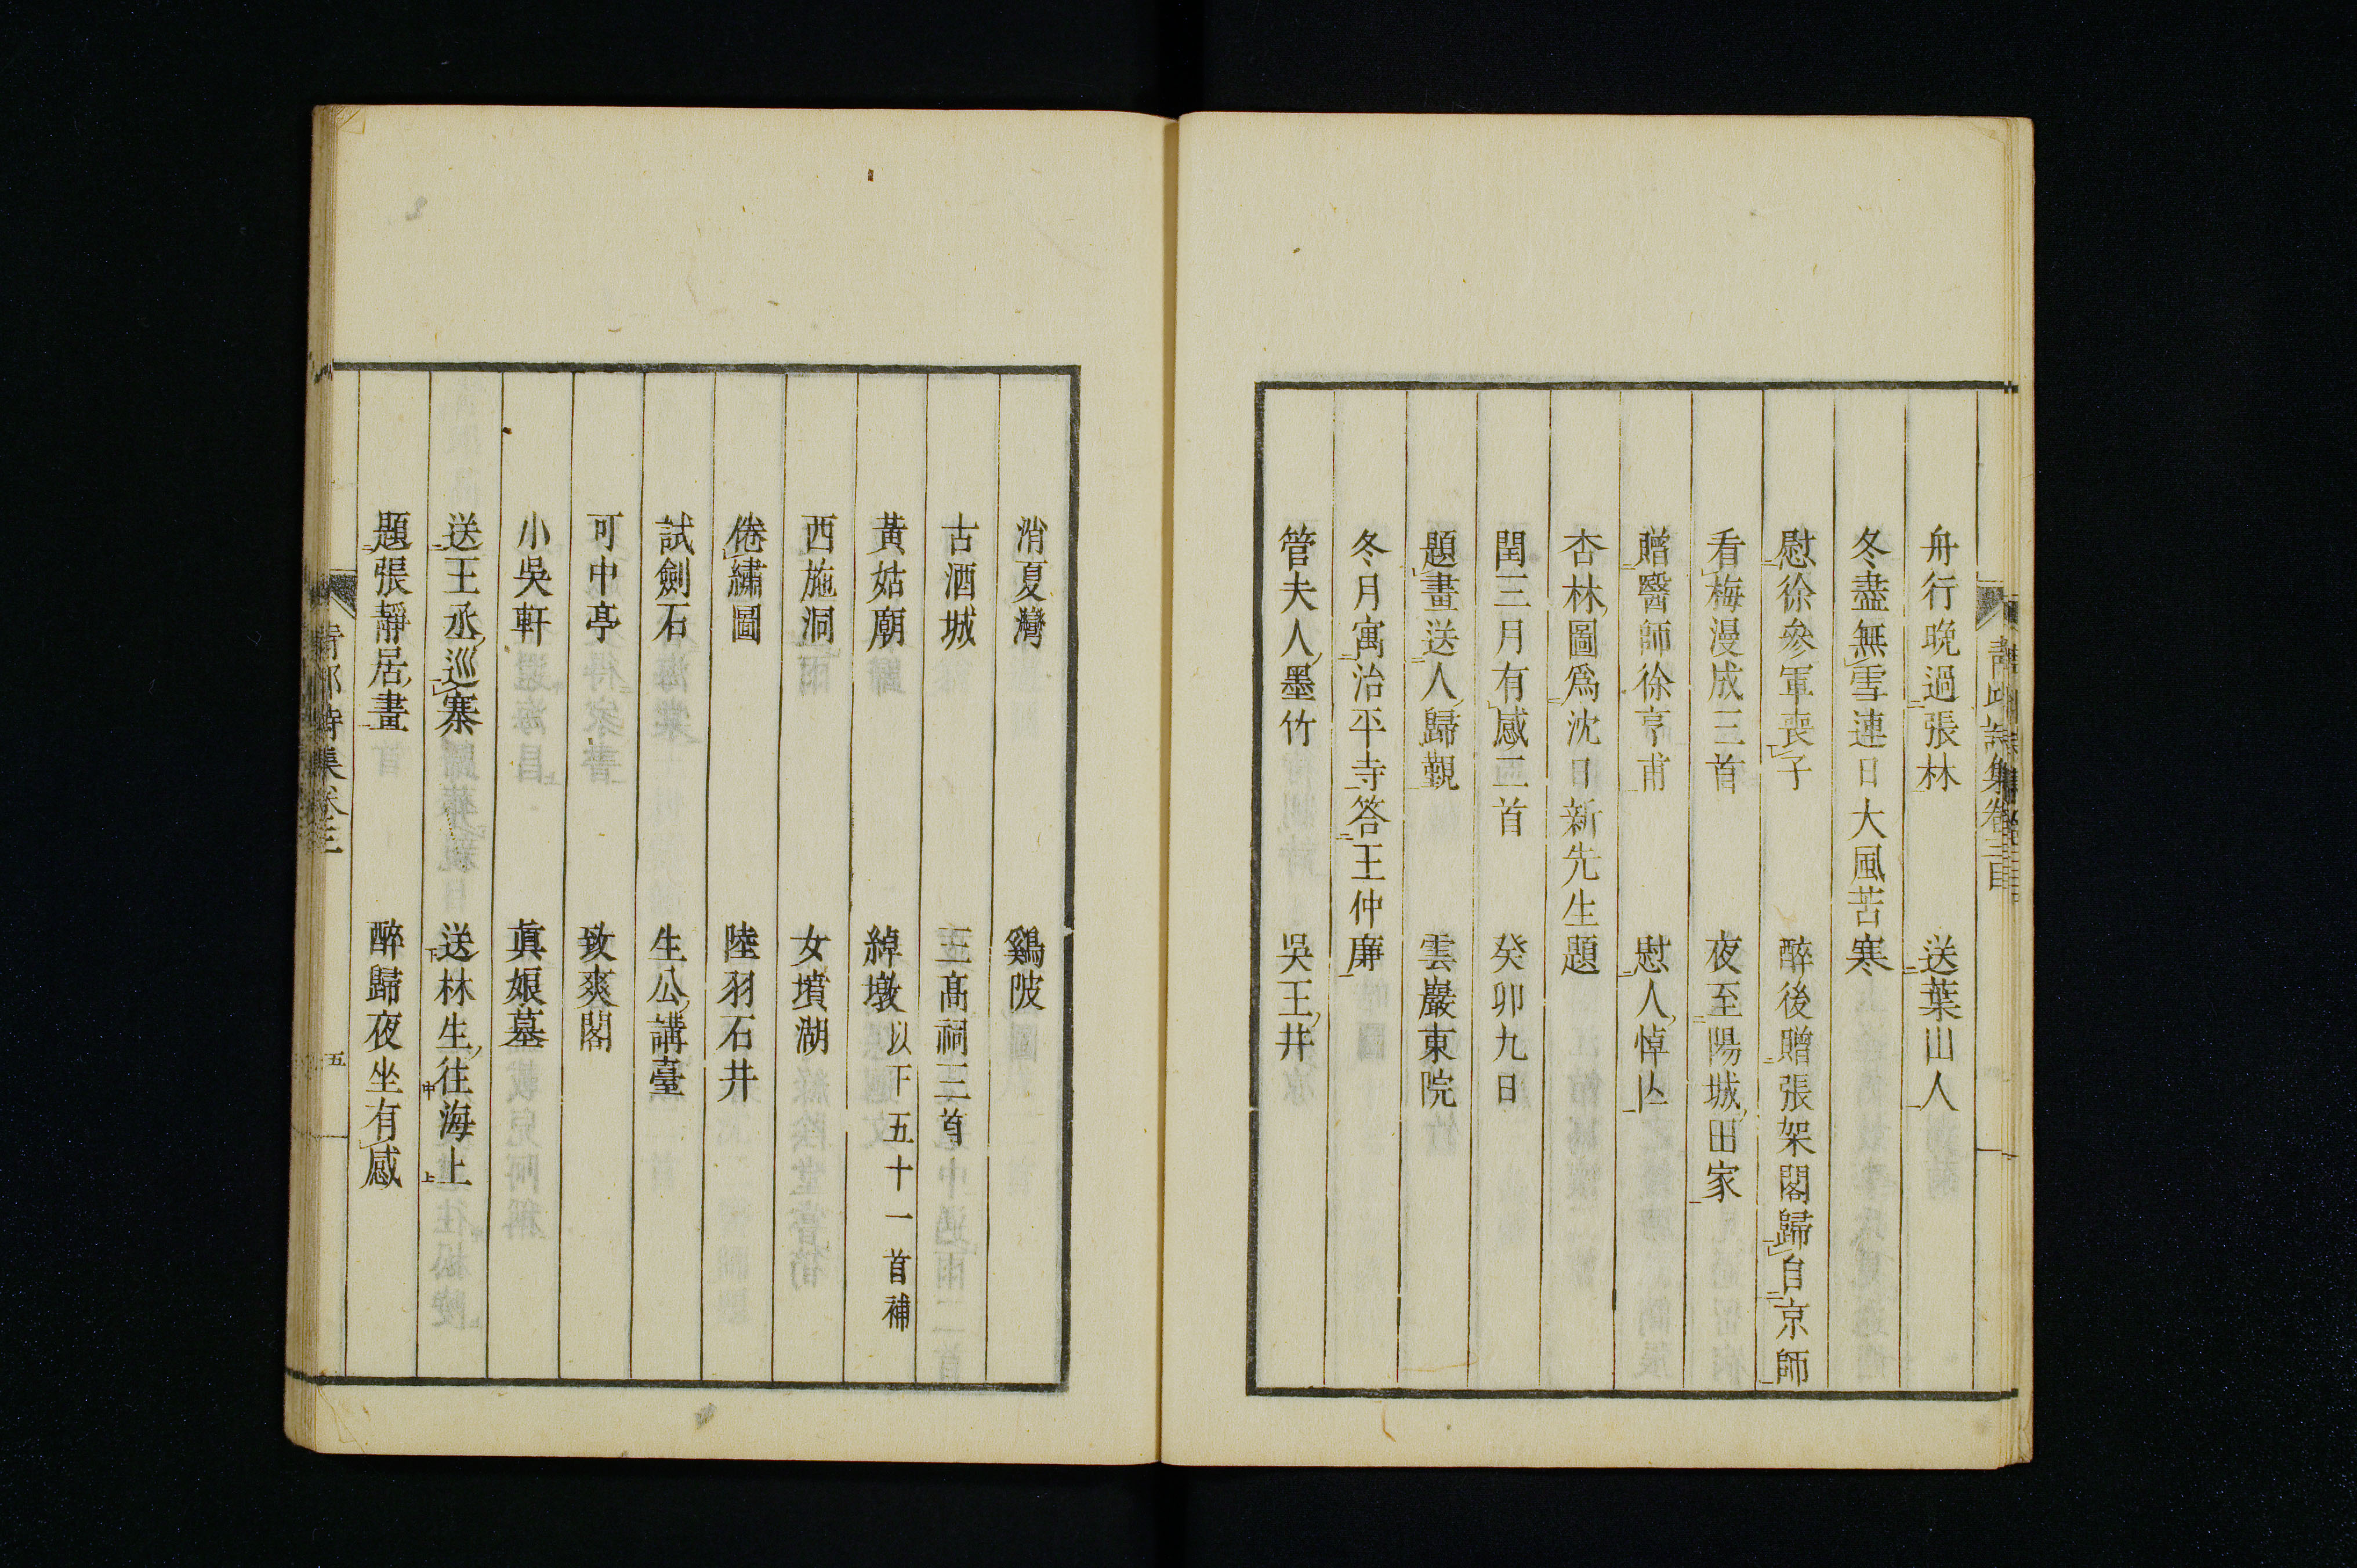 舟行晩過張林　送葉山人
冬盡無雪連日大風苦寒
慰徐參軍喪子　醉後贈張架閣歸自京師
看梅漫成三首　夜至陽城田家
贈醫師徐亨甫　慰人悼亾
杏林圖爲沈日新先生題
閏三月有感二首　癸卯九日
題畫送人歸覲　雲巖東院
冬月寓治平寺答王仲廉
管夫人墨竹　吳王井
消夏灣　鷄陂
古酒城　三高祠三首
黃姑廟　綽墩以下五十一首補
西施洞　女墳湖
倦繡圖　陸羽石井
試劍石　生公講臺
可中亭　致爽閣
小吳軒　眞娘墓
送王丞巡寨　送林生往海上
題張靜居畫　醉歸夜坐有感
五